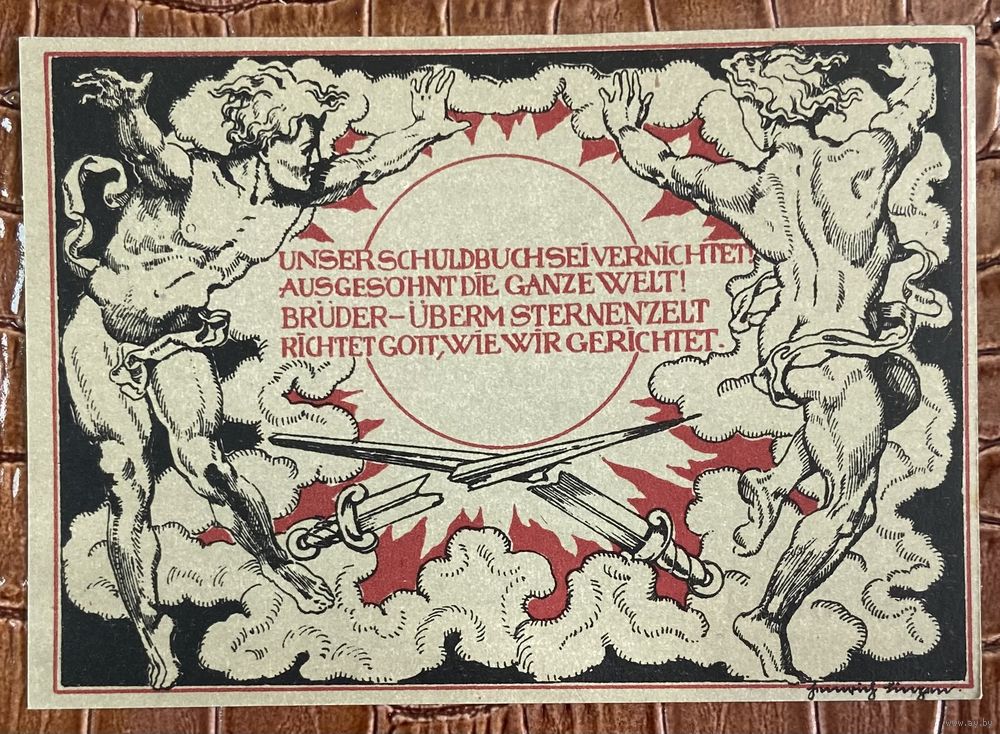 UNSER SCHULDBUCH SEI VERNICHTET!
AUSGESÖHNT DIE GANZE WELT!
BRÜDER – ÜBERM STERNENZELT
RICHTET GOTT, WIE WIR GERICHTET.
www.ay.by